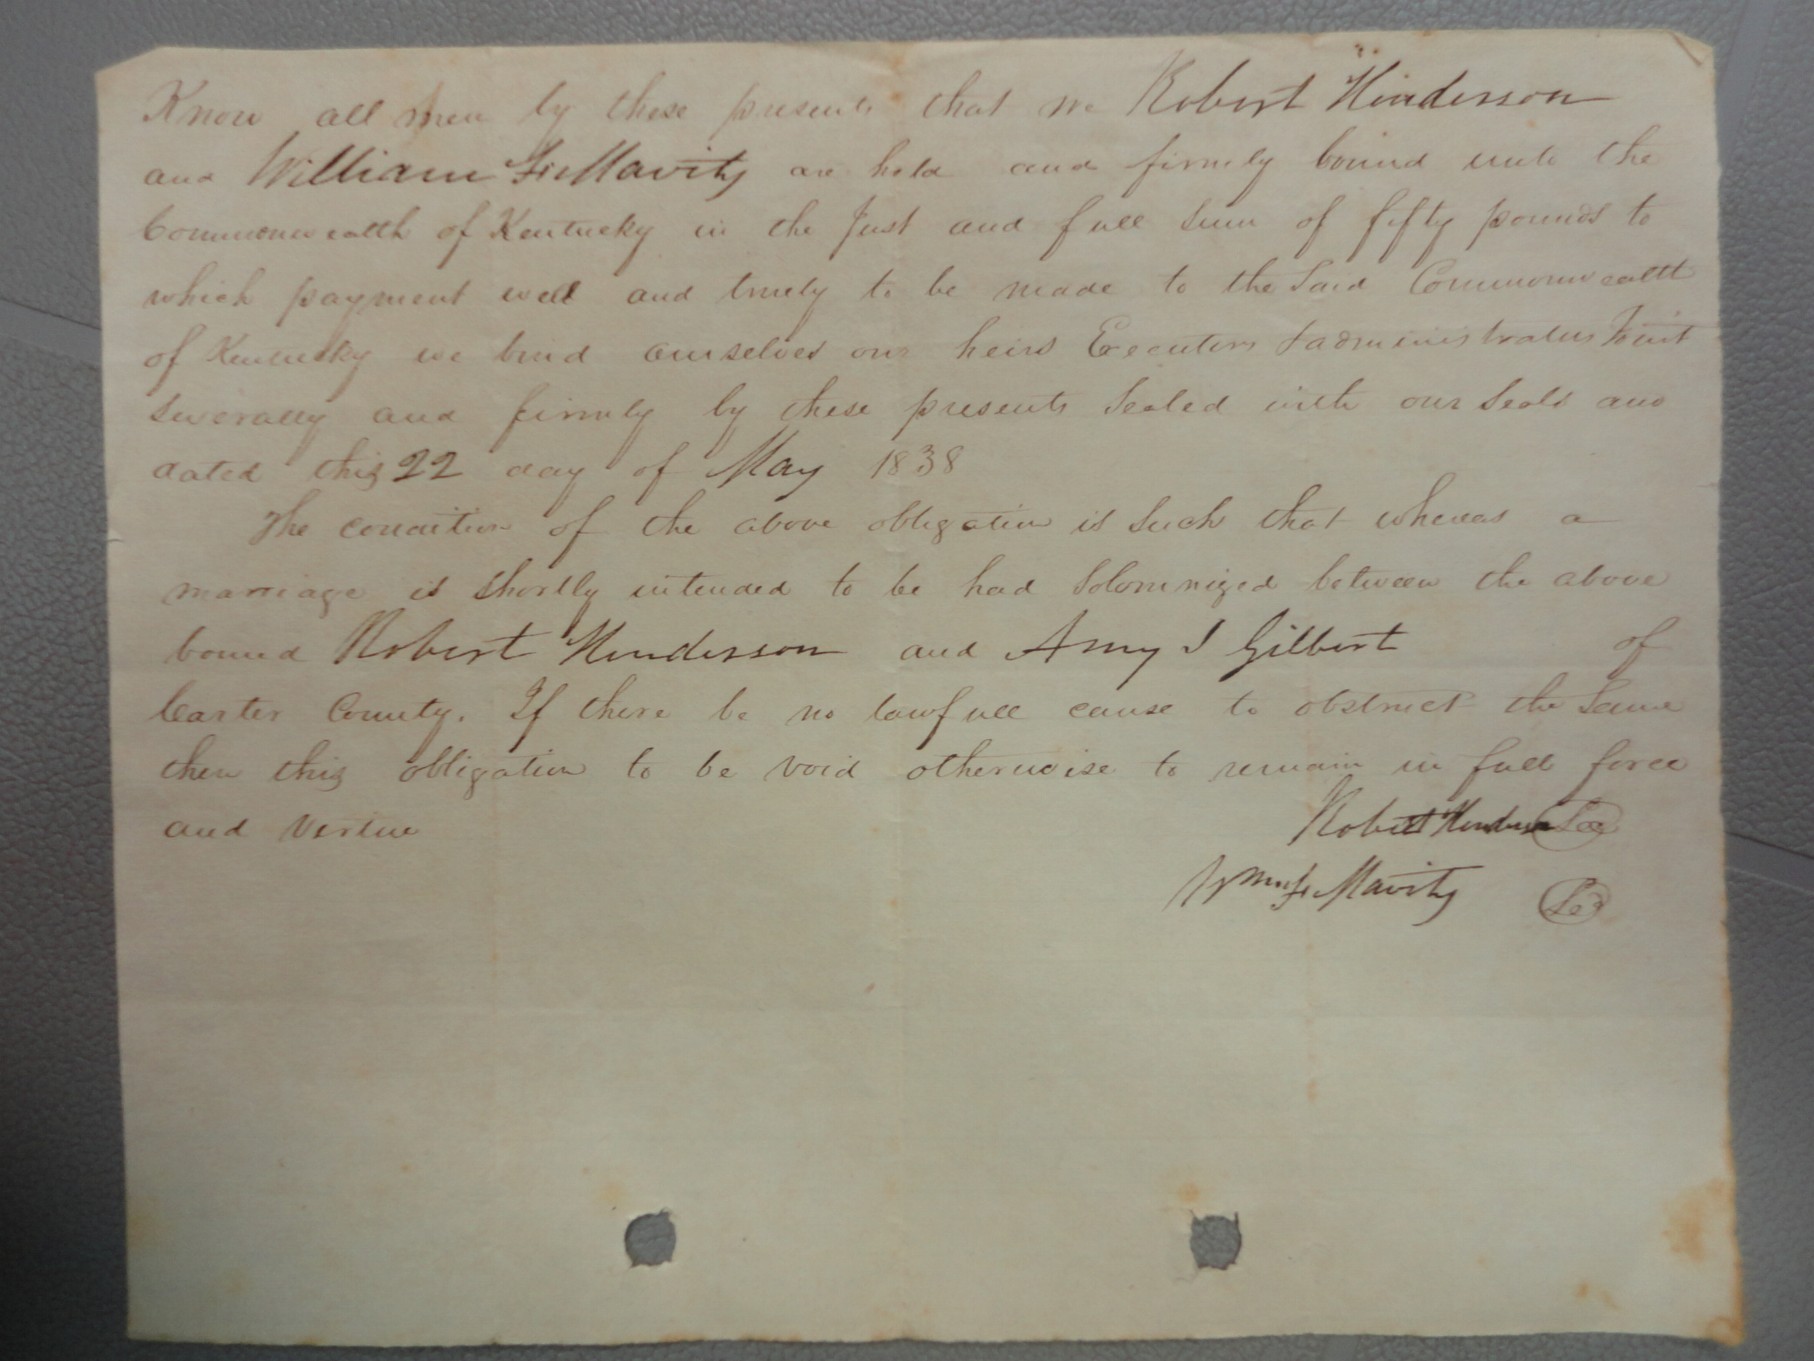 Know all men by these presents that we Robert Hinderson
and William F. Mavity are held and firmly bound unto the
Commonwealth of Kentucky in the Just and full sum of fifty pounds to
which payment well and truely to be made to the said Commonwealth
of Kentucky we bind ourselves our heirs Executors & administrators Joint
Severally and firmly by these presents Sealed with our Seals and
dated this 22 day of May 1838
The condition of the above obligation is such that whereas a
marriage is shortly intended to be had Solomnized between the above
bound Robert Henderson and Amy J Gilbert of
Carter County. If there be no lawfull cause to obstruct the same
then this obligation to be void otherwise to remain in full force
and Vertue
Robert Henderson
Wm F. Mavity